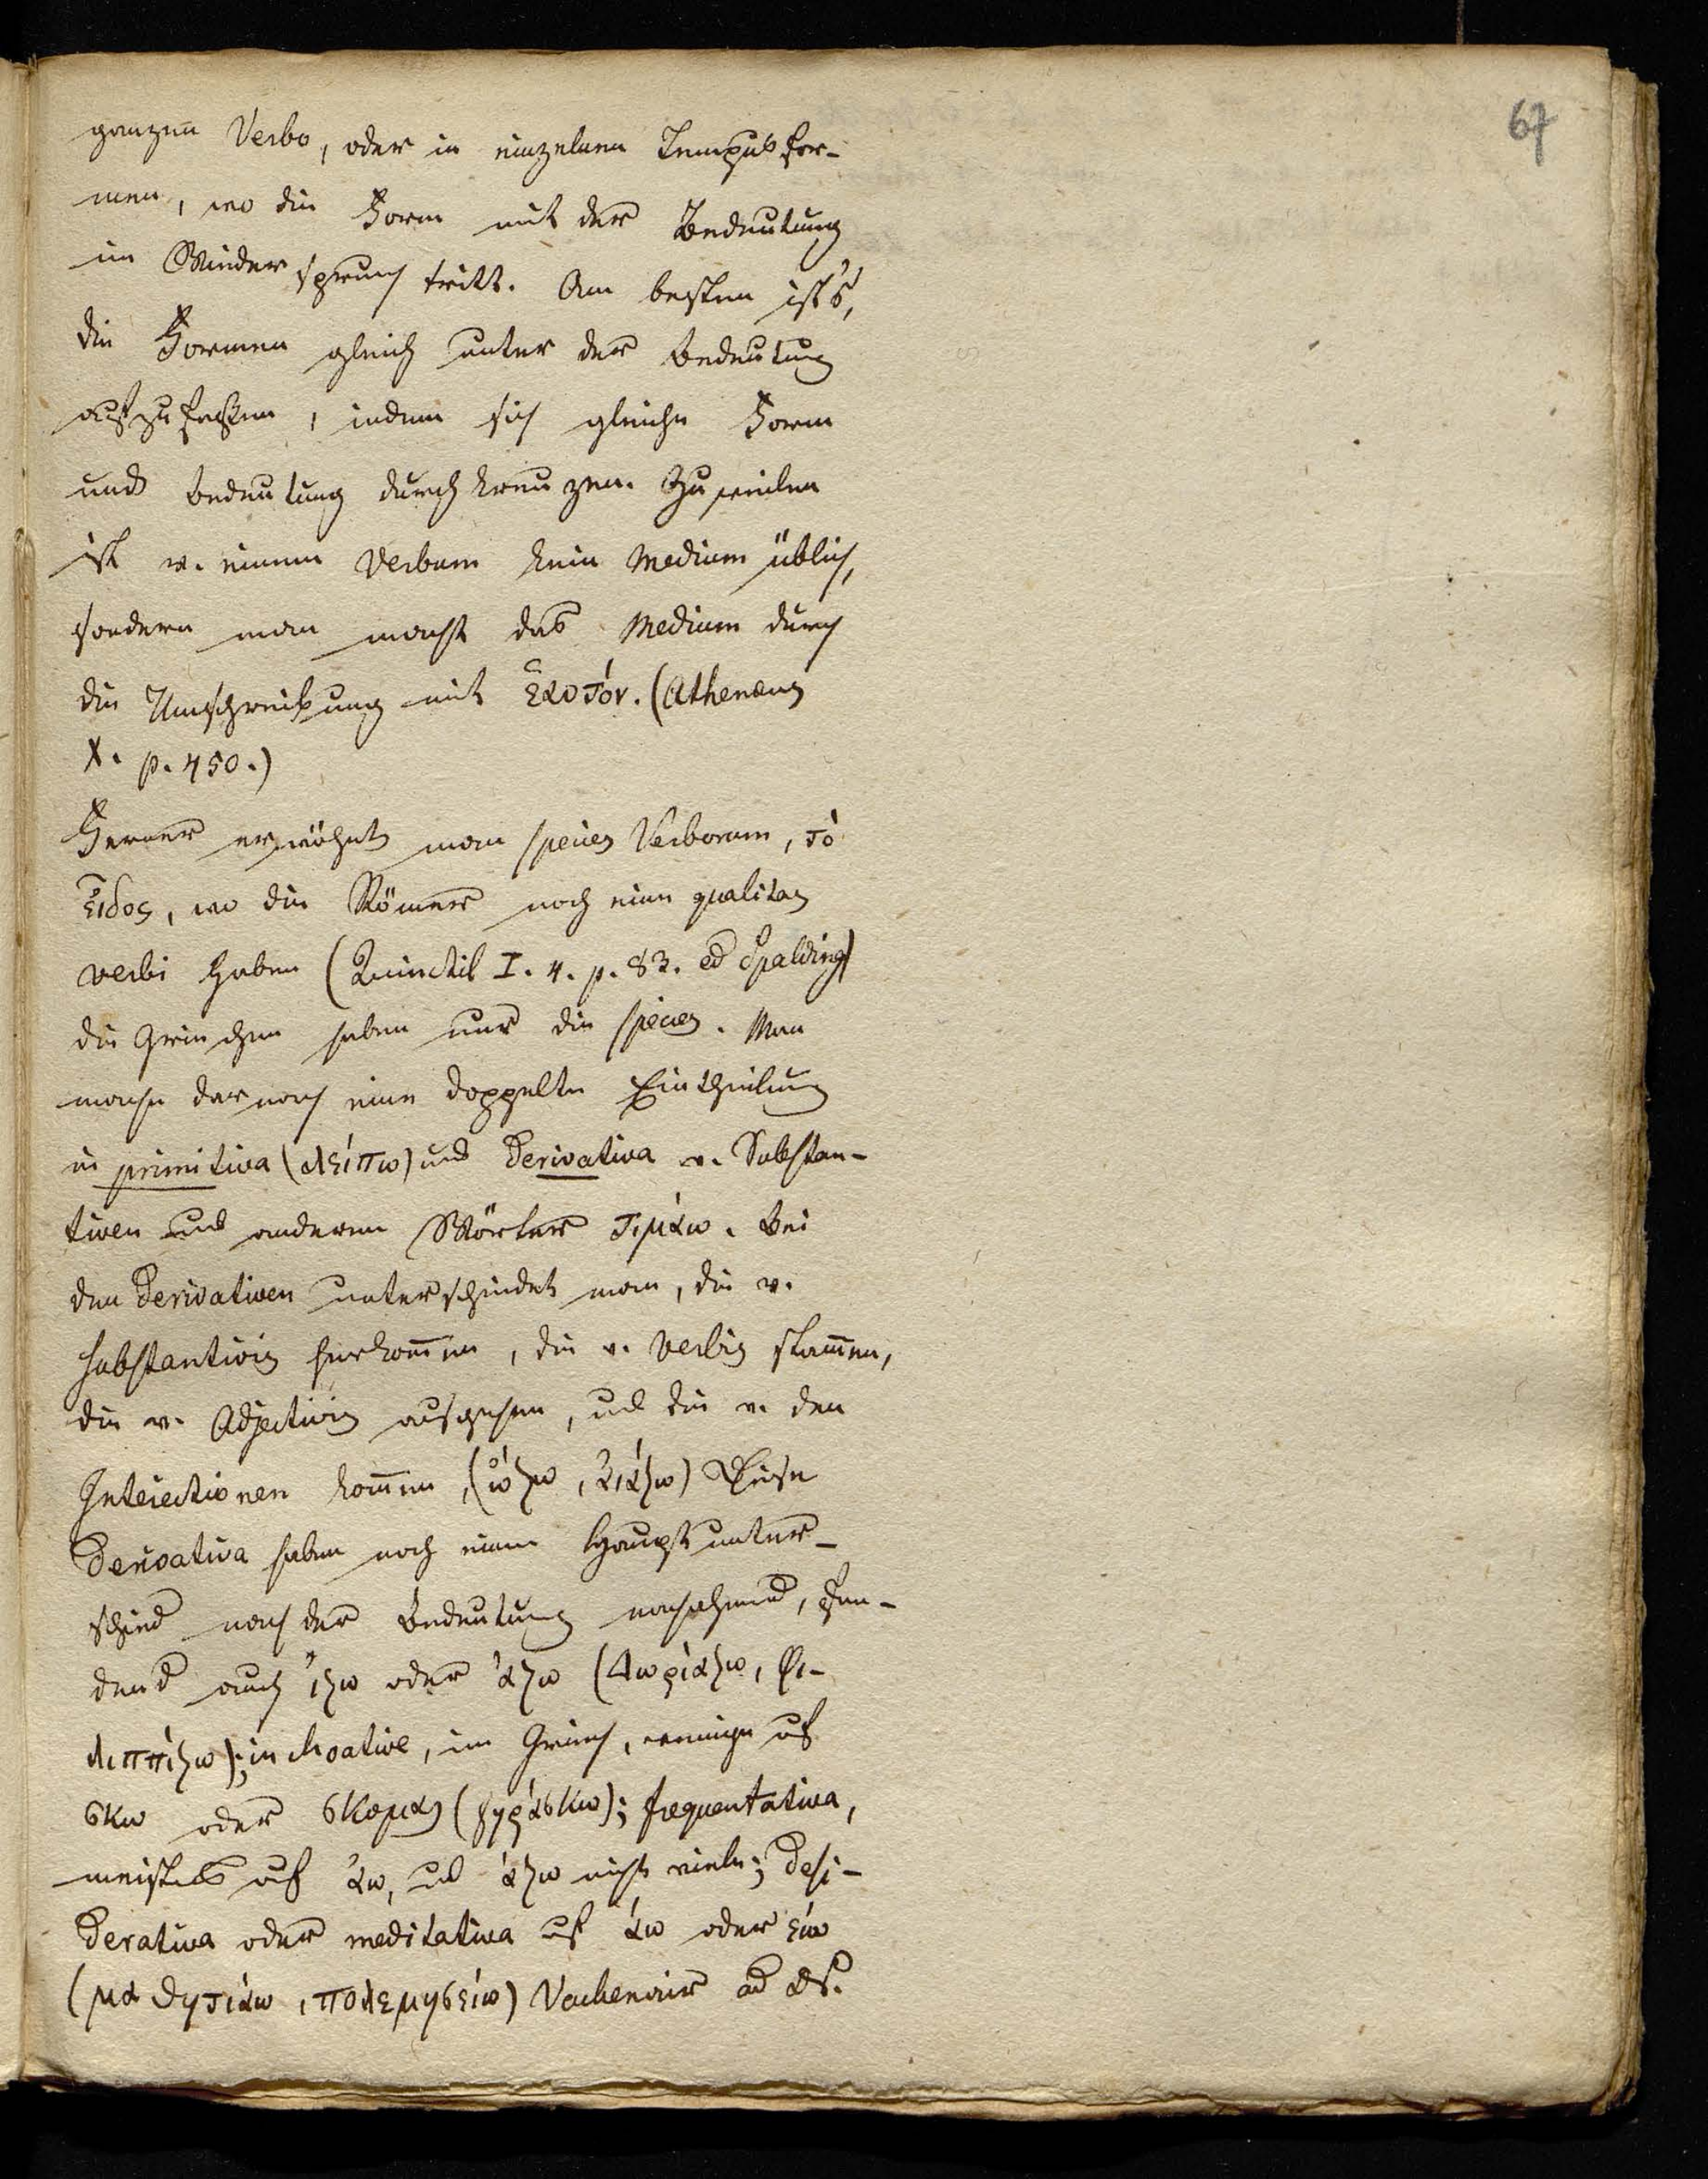 67
ganzen Verbo, oder in einzelnen Tempusfor-
men, wo die Form mit der Bedeutung
in Wiederspruch tritt. Am besten ist's,
die Formen gleich unter der Bedeutung
aufzufassen, indem sich gleiche Form
und Bedeutung durchkreuzen. Zuweilen
ist v. einem Verbum kein Medium üblich,
sondern man macht das Medium durch
die Umschreibung mit ἑαυτόν. (Athenaeus
X. p. 450.)
Ferner erwähnt man species Verborum, τὸ
εἶδος, wo die Römer noch eine qualitas
verbi haben (Quinctil I. 4. p. 83. ed Spalding)
die Griechen haben nur die species. Man
mache darnach eine doppelte Eintheilung
in primitiva (λείπω) und Derivativa v. Substan-
tiven und anderen Wörter τιμάω. Bei
den Derivativen unterscheidet man, die v.
substantivis herkom̅en, die v. verbis stam̅en,
die v. Adjectivis ausgehen, und die v. den
Interiectionen kom̅en, (ὤζω, αἰάζω) Diese
Derivativa haben noch einen Hauptunter-
schied nach der Bedeutung nachahmend,
auch ίζω oder άζω (Δωριάζω, Φι-
λιππίζω); inchoative, im Griech. wenige auf
σκω oder σκομαι (γηράσκω); frequentativa,
meistens auf άω, und άζω nicht viele; Desi-
derativa oder meditativa auf άω oder είω
(μαθητιάω, πολεμησείω) ad